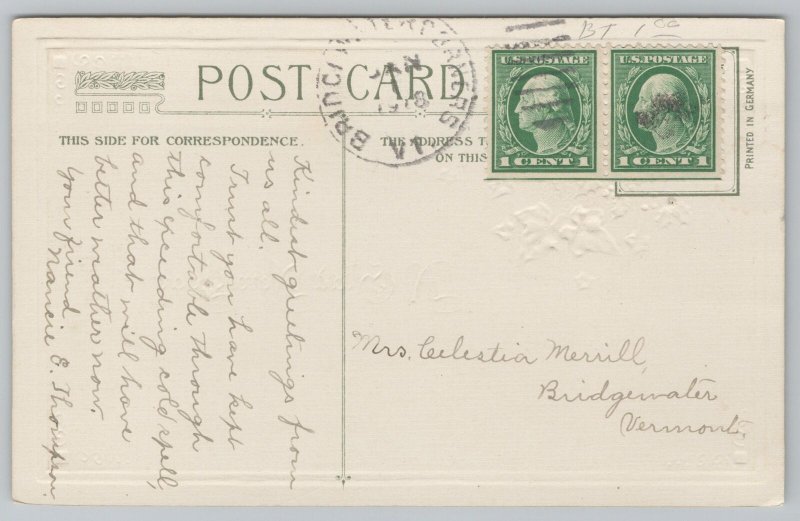 BT 1 00
POST CARD
THIS SIDE FOR CORRESPONDENCE.
THE ADDRESS T
ON THIS
BRIDG WATER CORNERS
VT
U.S. POSTAGE
1 CENT 1
U.S. POSTAGE
1 CENT 1
PRINTED IN GERMANY
Kindest greetings from
us all.
Trust you have kept
comfortable through
this freezing cold spell,
and that will have
better weather now.
Your friend
Nancie E. Thompson.
Mrs. Celestia Merrill,
Bridgewater
Vermont.